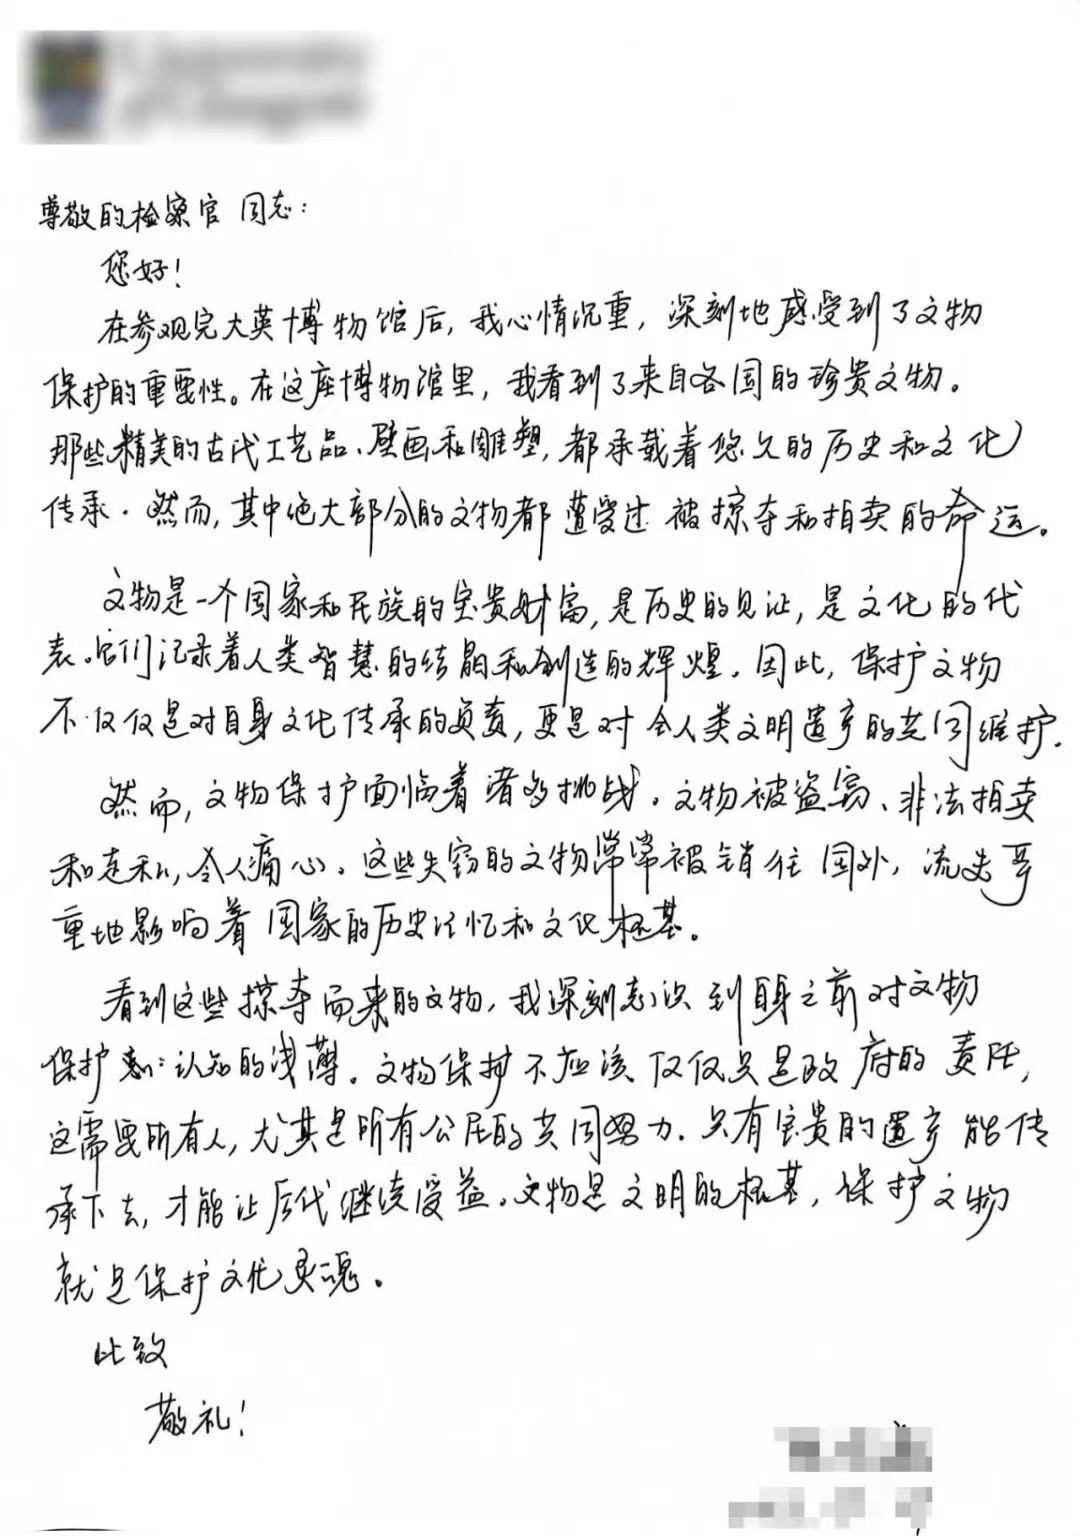 尊敬的检察官同志：
您好！
在参观完大英博物馆后，我心情沉重，深刻地感受到了文物
保护的重要性。在这座博物馆里，我看到了来自各国的珍贵文物。
那些精美的古代工艺品、壁画和雕塑，都承载着悠久的历史和文化
传承。然而，其中绝大部分的文物都遭受过被掠夺和拍卖的命运。
文物是一个国家和民族的宝贵财富，是历史的见证，是文化的代
表。它们记录着人类智慧的结晶和创造的辉煌。因此，保护文物
不仅仅是对自身文化传承的负责，更是对全人类文明遗产的共同维护.
然而，文物保护面临着诸多挑战。文物被盗窃、非法拍卖
和走私，令人痛心。这些失窃的文物常常被销往国外，流失严
重地影响着国家的历史记忆和文化根基。
看到这些掠夺而来的文物，我深刻意识到自身之前对文物
保护认知的浅薄。文物保护不应该仅仅只是政府的责任，
这需要所有人，尤其是所有公民的共同努力.只有宝贵的遗产能传
承下去，才能让后代继续受益.文物是文明的根基，保护文物
就是保护文化灵魂。
此致
敬礼！